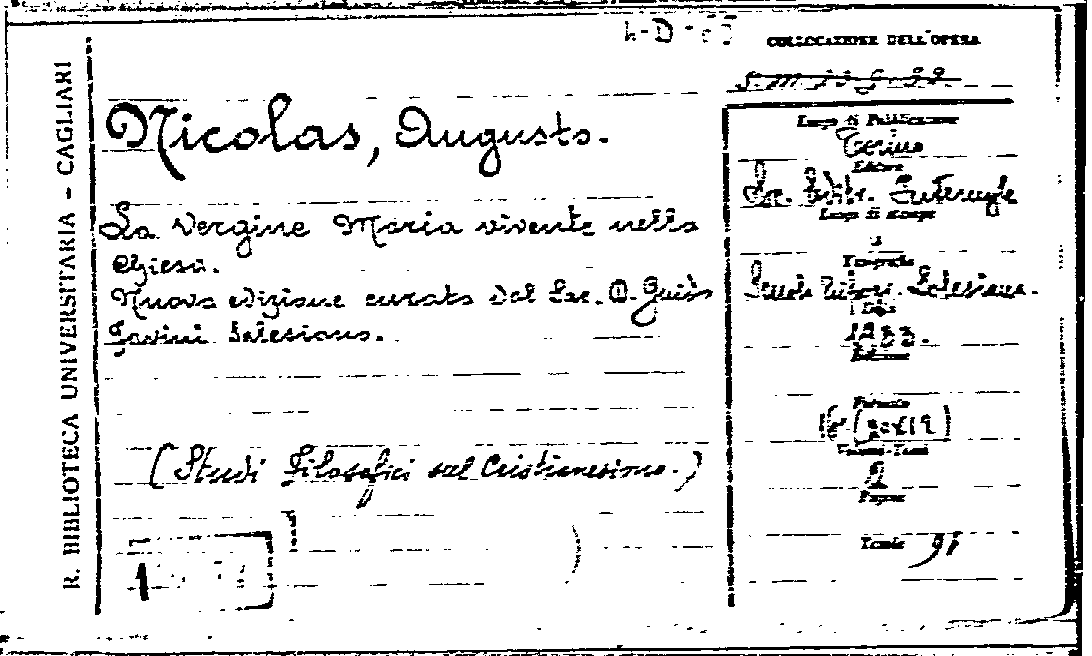 R. BIBLIOTECA UNIVERSITARIA - CAGLIARI
COLLOCAZIONE DELL'OPERA
Nicolas, Augusto.
La Vergine Maria vivente nella
Chiesa.
Nuova edizione curata dal Sac. D. Guido
Favini Salesiano.
(Studi Filosofici sul Cristianesimo.)
Luogo di Pubblicazione
Torino
Editore
Soc. Editr. Internazle
Luogo di stampa
Tipografia
Scuola Tipogr. Salesiana.
Data
1933.
Edizione
Formato
Volumi-Tomi
2
Pagine
Tomle 91